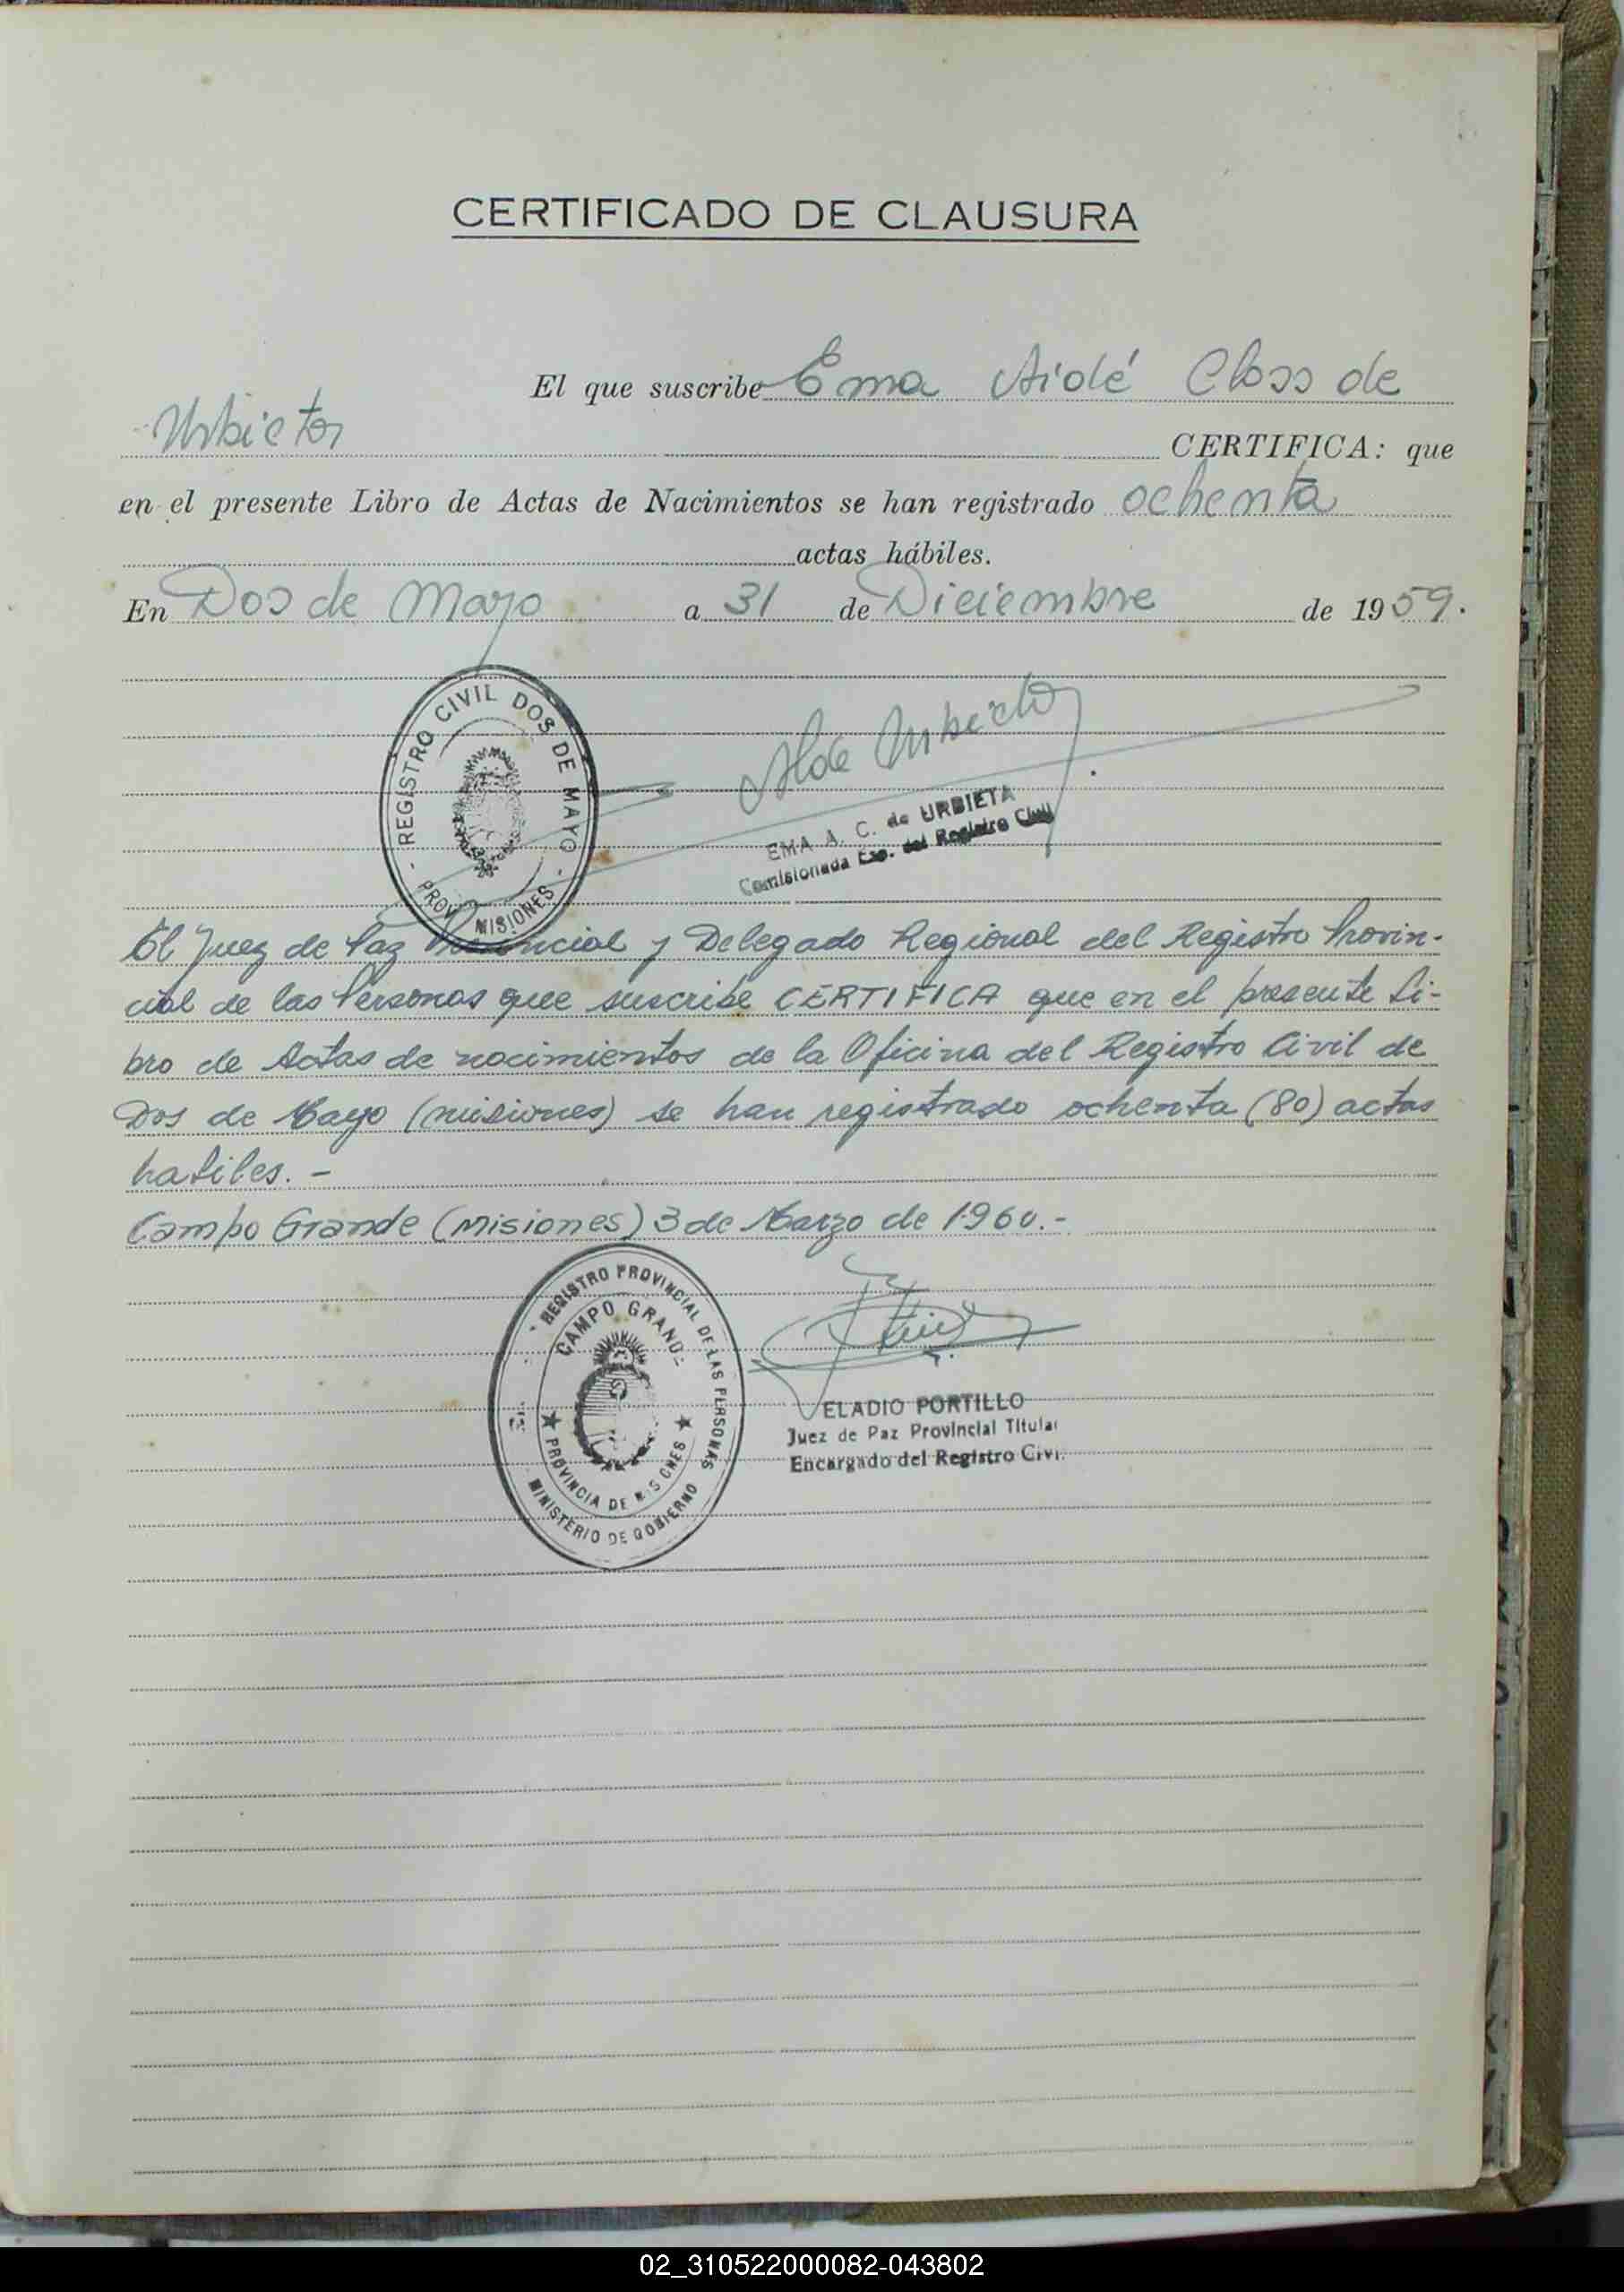 CERTIFICADO DE CLAUSURA
El que suscribe Ema Aidé Closs de
Urbieta CERTIFICA: que
en el presente Libro de Actas de Nacimientos se han registrado ochenta
actas hábiles.
En Dos de Mayo a 31 de Diciembre de 1959.
- REGISTRO CIVIL DOS DE MAYO -
PROV. MISIONES
EMA A. C. de URBIETA
Comisionada Esp. del Registro Civil
El Juez de Paz Provincial y Delegado Regional del Registro Provin-
cial de las Personas que suscribe CERTIFICA que en el presente Li-
bro de Actas de nacimientos de la Oficina del Registro Civil de
Dos de Mayo (misiones) se han registrado ochenta (80) actas
habiles. -
Campo Grande (Misiones) 3 de Marzo de 1960.-
REGISTRO PROVINCIAL DE LAS PERSONAS
CAMPO GRANDE
PROVINCIA DE MISIONES
MINISTERIO DE GOBIERNO
ELADIO PORTILLO
Juez de Paz Provincial Titular
Encargado del Registro Civi.
02_310522000082-043802